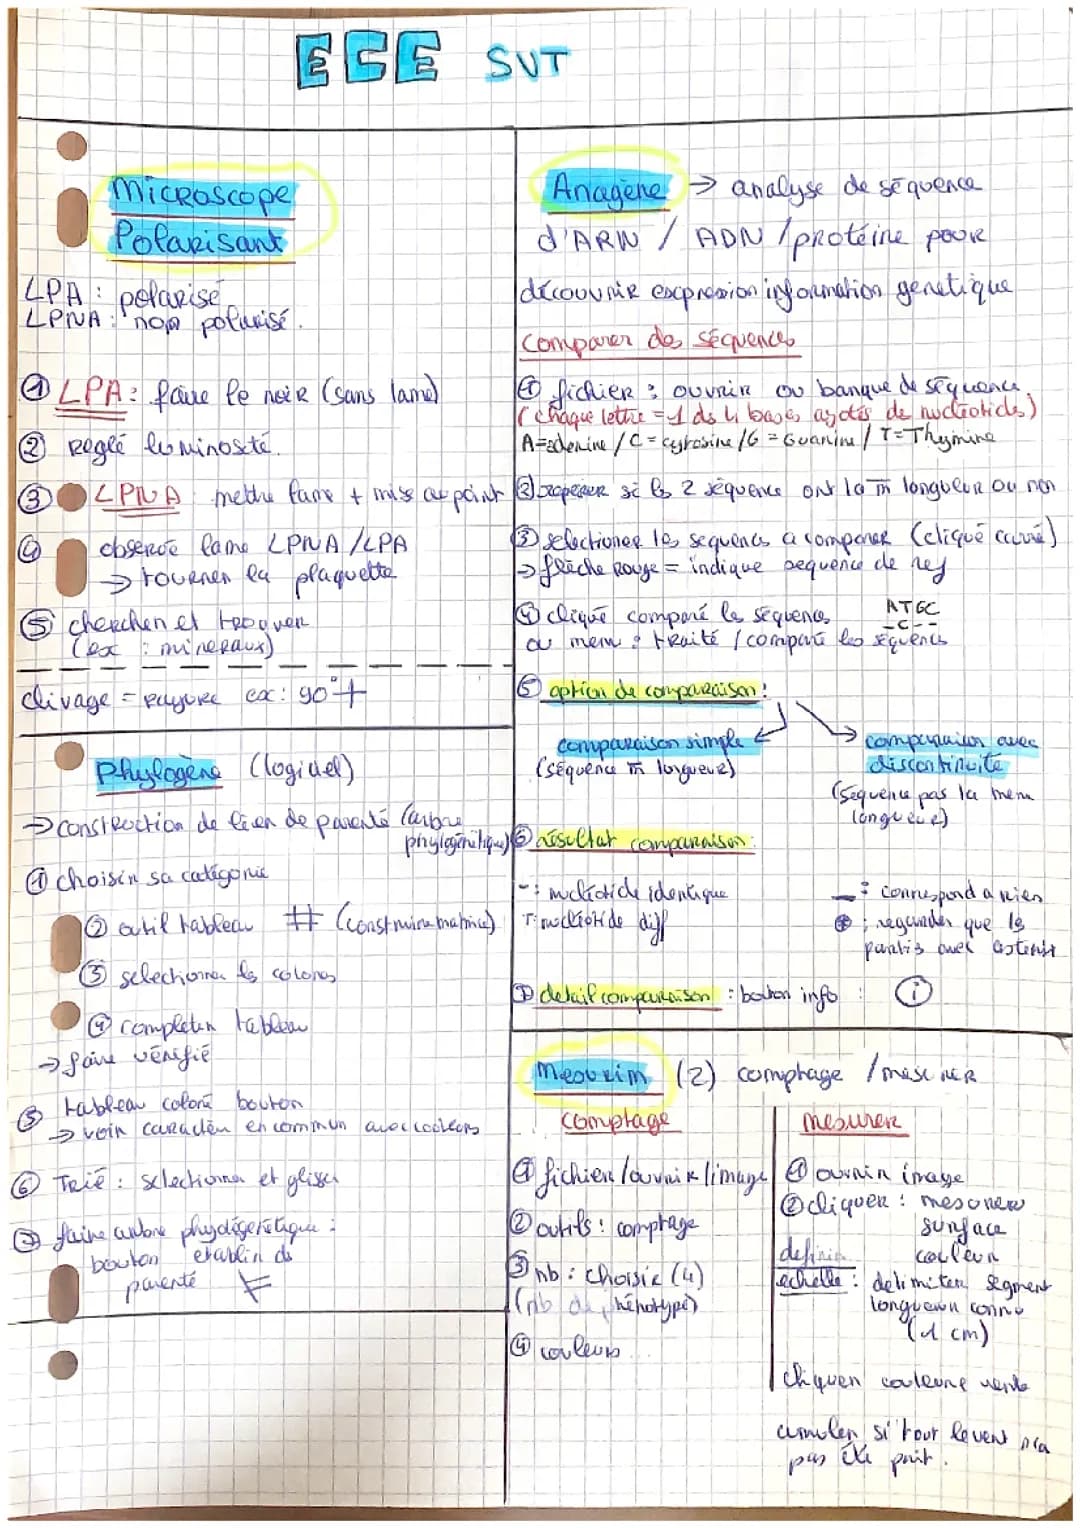 ECE SVT
Microscope
Polarisant
LPA : polarisé
LPNA : non polarisé.
① LPA : faire le noir (sans lame)
② reglé luminosité.
③ LPNA mettre lame + miss au point
④ observé lame LPNA/LPA
→ tourner la plaquette
⑤ chercher et trouver
(ex : mineraux)
clivage = rayure ex : 90° +
Phylogène (logiciel)
→ construction de lien de parenté (arbre
phylogénétique)
① choisir sa catégorie
② outil tableau # (construire matrice)
③ selectionner les colones
④ completer tableau
→ faire vérifié
⑤ tableau coloré bouton
→ voir caractère en commun avec couleurs
⑥ Trié : selectionner et glisser
⑦ faire arbre phylogénétique :
bouton etablir des
parenté
Anagène → analyse de séquence
d'ARN / ADN / protéine pour
découvrir expression information genetique
Comparer des séquences
① fichier : ouvrir ou banque de séquence
(chaque lettre = 1 des 4 bases azotés de nucléotides)
A=adenine / C = cytosine / G = Guanine / T=Thymine
② reperer si les 2 séquence ont la m̄ longueur ou non
③ selectioner les sequences a comparer (cliqué carré)
→ flèche rouge = indique sequence de ref
④ cliqué comparé les séquences ATGC
-C--
ou menu : traité / comparé les séquences
⑤ option de comparaison :
comparaison simple
(séquence m̄ longueur)
comparaison avec
discontinuité
(Sequence pas la meme
longueur)
⑥ résultat comparaison :
- : nucléotide identique
T : nucléotide diff
_ : correspond a rien
* : regarder que les
partis avec asterix
⑦ detail comparaison : bouton info : ⓘ
Mesurim (2) comptage / mesurer
Comptage
① fichier / ouvrir / image
② outils : comptage
③ nb : choisir (4)
(nb de phénotype)
④ couleurs...
Mesurer
① ouvrir image
② cliquer : mesurer
surface
couleur
définir
echelle : délimiter segment
longueur connu
(1 cm)
cliquer couleure verte
cumuler si tout le vert n'a
pas été prit.